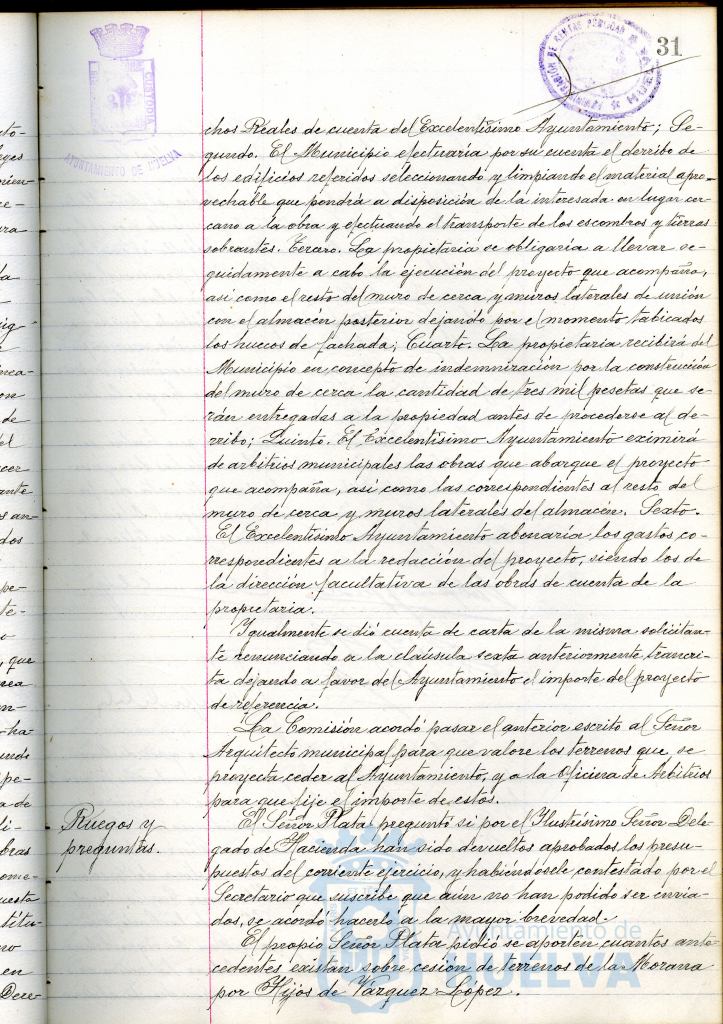 31
CUSTODIA
AYUNTAMIENTO DE HUELVA
ADMINISTRACIÓN DE RENTAS PÚBLICAS
HUELVA
chos Reales de cuenta del Excelentísimo Ayuntamiento; Se-
gundo. El Municipio efectuaría por su cuenta el derribo de
los edificios referidos seleccionando y limpiando el material apro-
vechable que pondrá a disposición de la interesada en lugar cer-
cano a la obra y efectuando el transporte de los escombros y tierras
sobrantes. Tercero. La propietaria se obligaría a llevar se-
guidamente a cabo la ejecución del proyecto que acompaña,
así como el resto del muro de cerca y muros laterales de unión
con el almacén posterior dejando por el momento tabicados
los huecos de fachada; Cuarto. La propietaria recibirá del
Municipio en concepto de indemnización por la construcción
del muro de cerca la cantidad de tres mil pesetas que se-
rán entregadas a la propiedad antes de procederse al de-
rribo; Quinto. El Excelentísimo Ayuntamiento eximirá
de arbitrios municipales las obras que abarque el proyecto
que acompaña, así como las correspondientes al resto del
muro de cerca y muros laterales del almacén. Sexto.
El Excelentísimo Ayuntamiento abonaría los gastos co-
rrespondientes a la redacción del proyecto, siendo los de
la dirección facultativa de las obras de cuenta de la
propietaria.
Igualmente se dió cuenta de carta de la misma solicitan-
te renunciando a la cláusula sexta anteriormente transcri-
ta dejando a favor del Ayuntamiento el importe del proyecto
de referencia.
La Comisión acordó pasar el anterior escrito al Señor
Arquitecto municipal para que valore los terrenos que se
proyecta ceder al Ayuntamiento, y a la Oficina de Arbitrios
para que fije el importe de estos.
Ruegos y
preguntas.
El Señor Plata preguntó si por el Ilustrísimo Señor Dele-
gado de Hacienda han sido devueltos aprobados los presu-
puestos del corriente ejercicio, y habiéndosele contestado por el
Secretario que suscribe que aún no han podido ser envia-
dos, se acordó hacerlo a la mayor brevedad.
El propio Señor Plata pidió se aporten cuantos ante-
cedentes existan sobre cesión de terrenos de la Morana
por Hijos de Vázquez López.
Ayuntamiento de
HUELVA